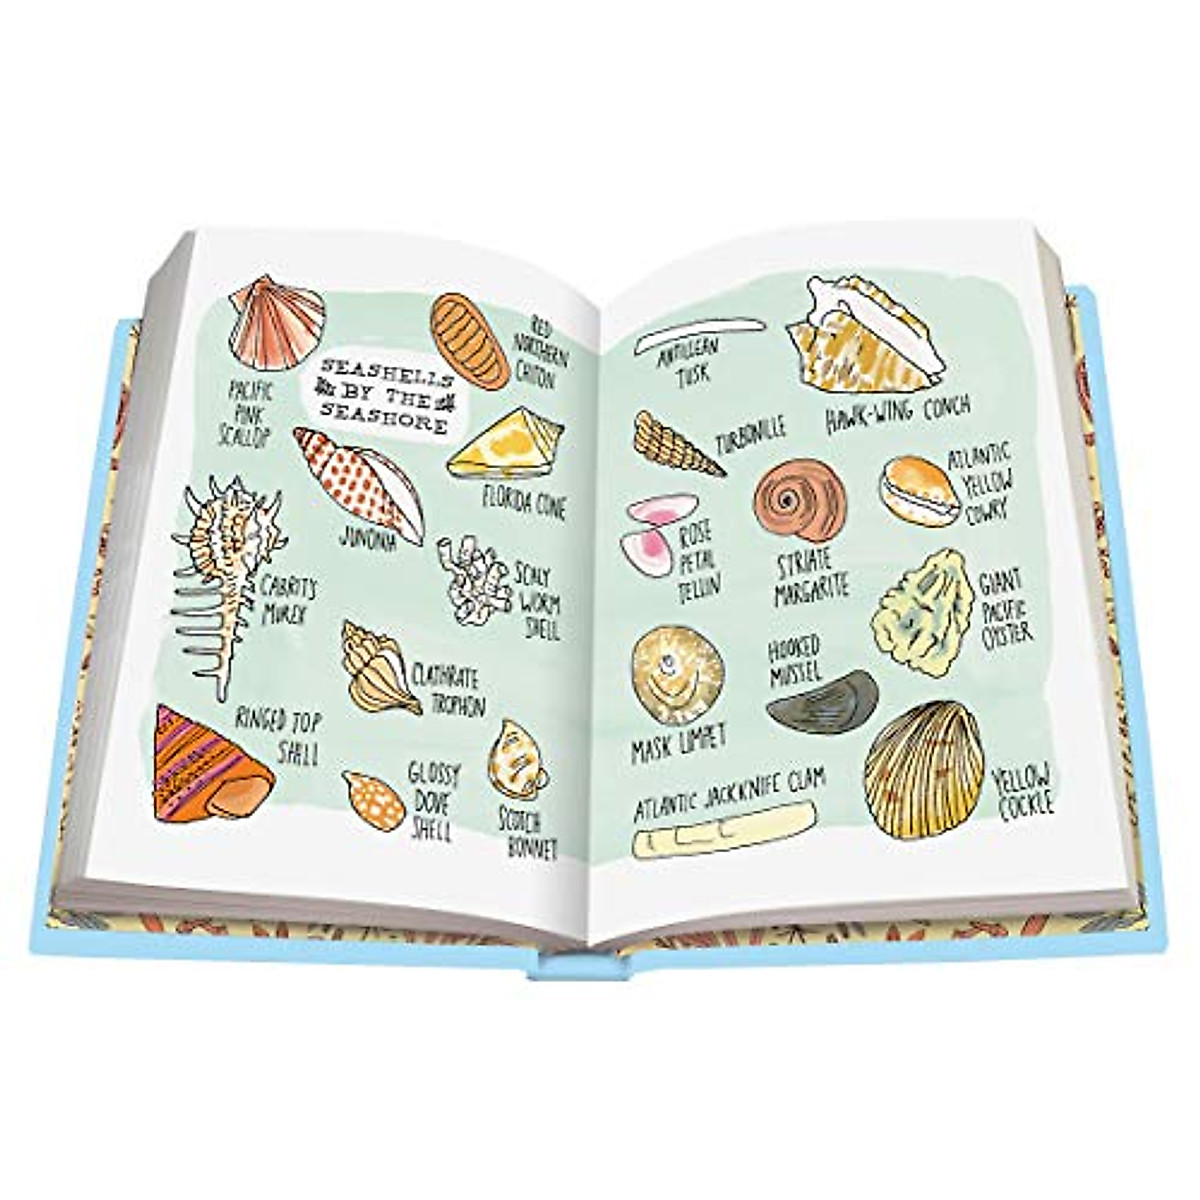 SEASHELLS
BY THE
SEASHORE
PACIFIC
PINK
SCALLOP
RED
NORTHERN
CHITON
JUNONIA
FLORIDA CONE
CABRIT'S
MUREX
SCALY
WORM
SHELL
CLATHRATE
TROPHON
RINGED TOP
SHELL
GLOSSY
DOVE
SHELL
SCOTCH
BONNET
ANTILLEAN
TUSK
HAWK-WING CONCH
TURBONILLE
ATLANTIC
YELLOW
COWRY
ROSE
PETAL
TELLIN
STRIATE
MARGARITE
GIANT
PACIFIC
OYSTER
HOOKED
MUSSEL
MASK LIMPET
ATLANTIC JACKKNIFE CLAM
YELLOW
COCKLE